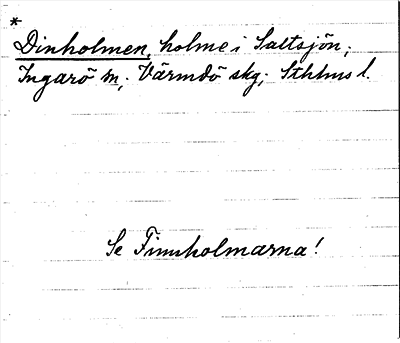 *
Dinholmen, holme i Saltsjön;
Ingarö sn; Värmdö skg; Sthlms l.
Se Finnholmarna!